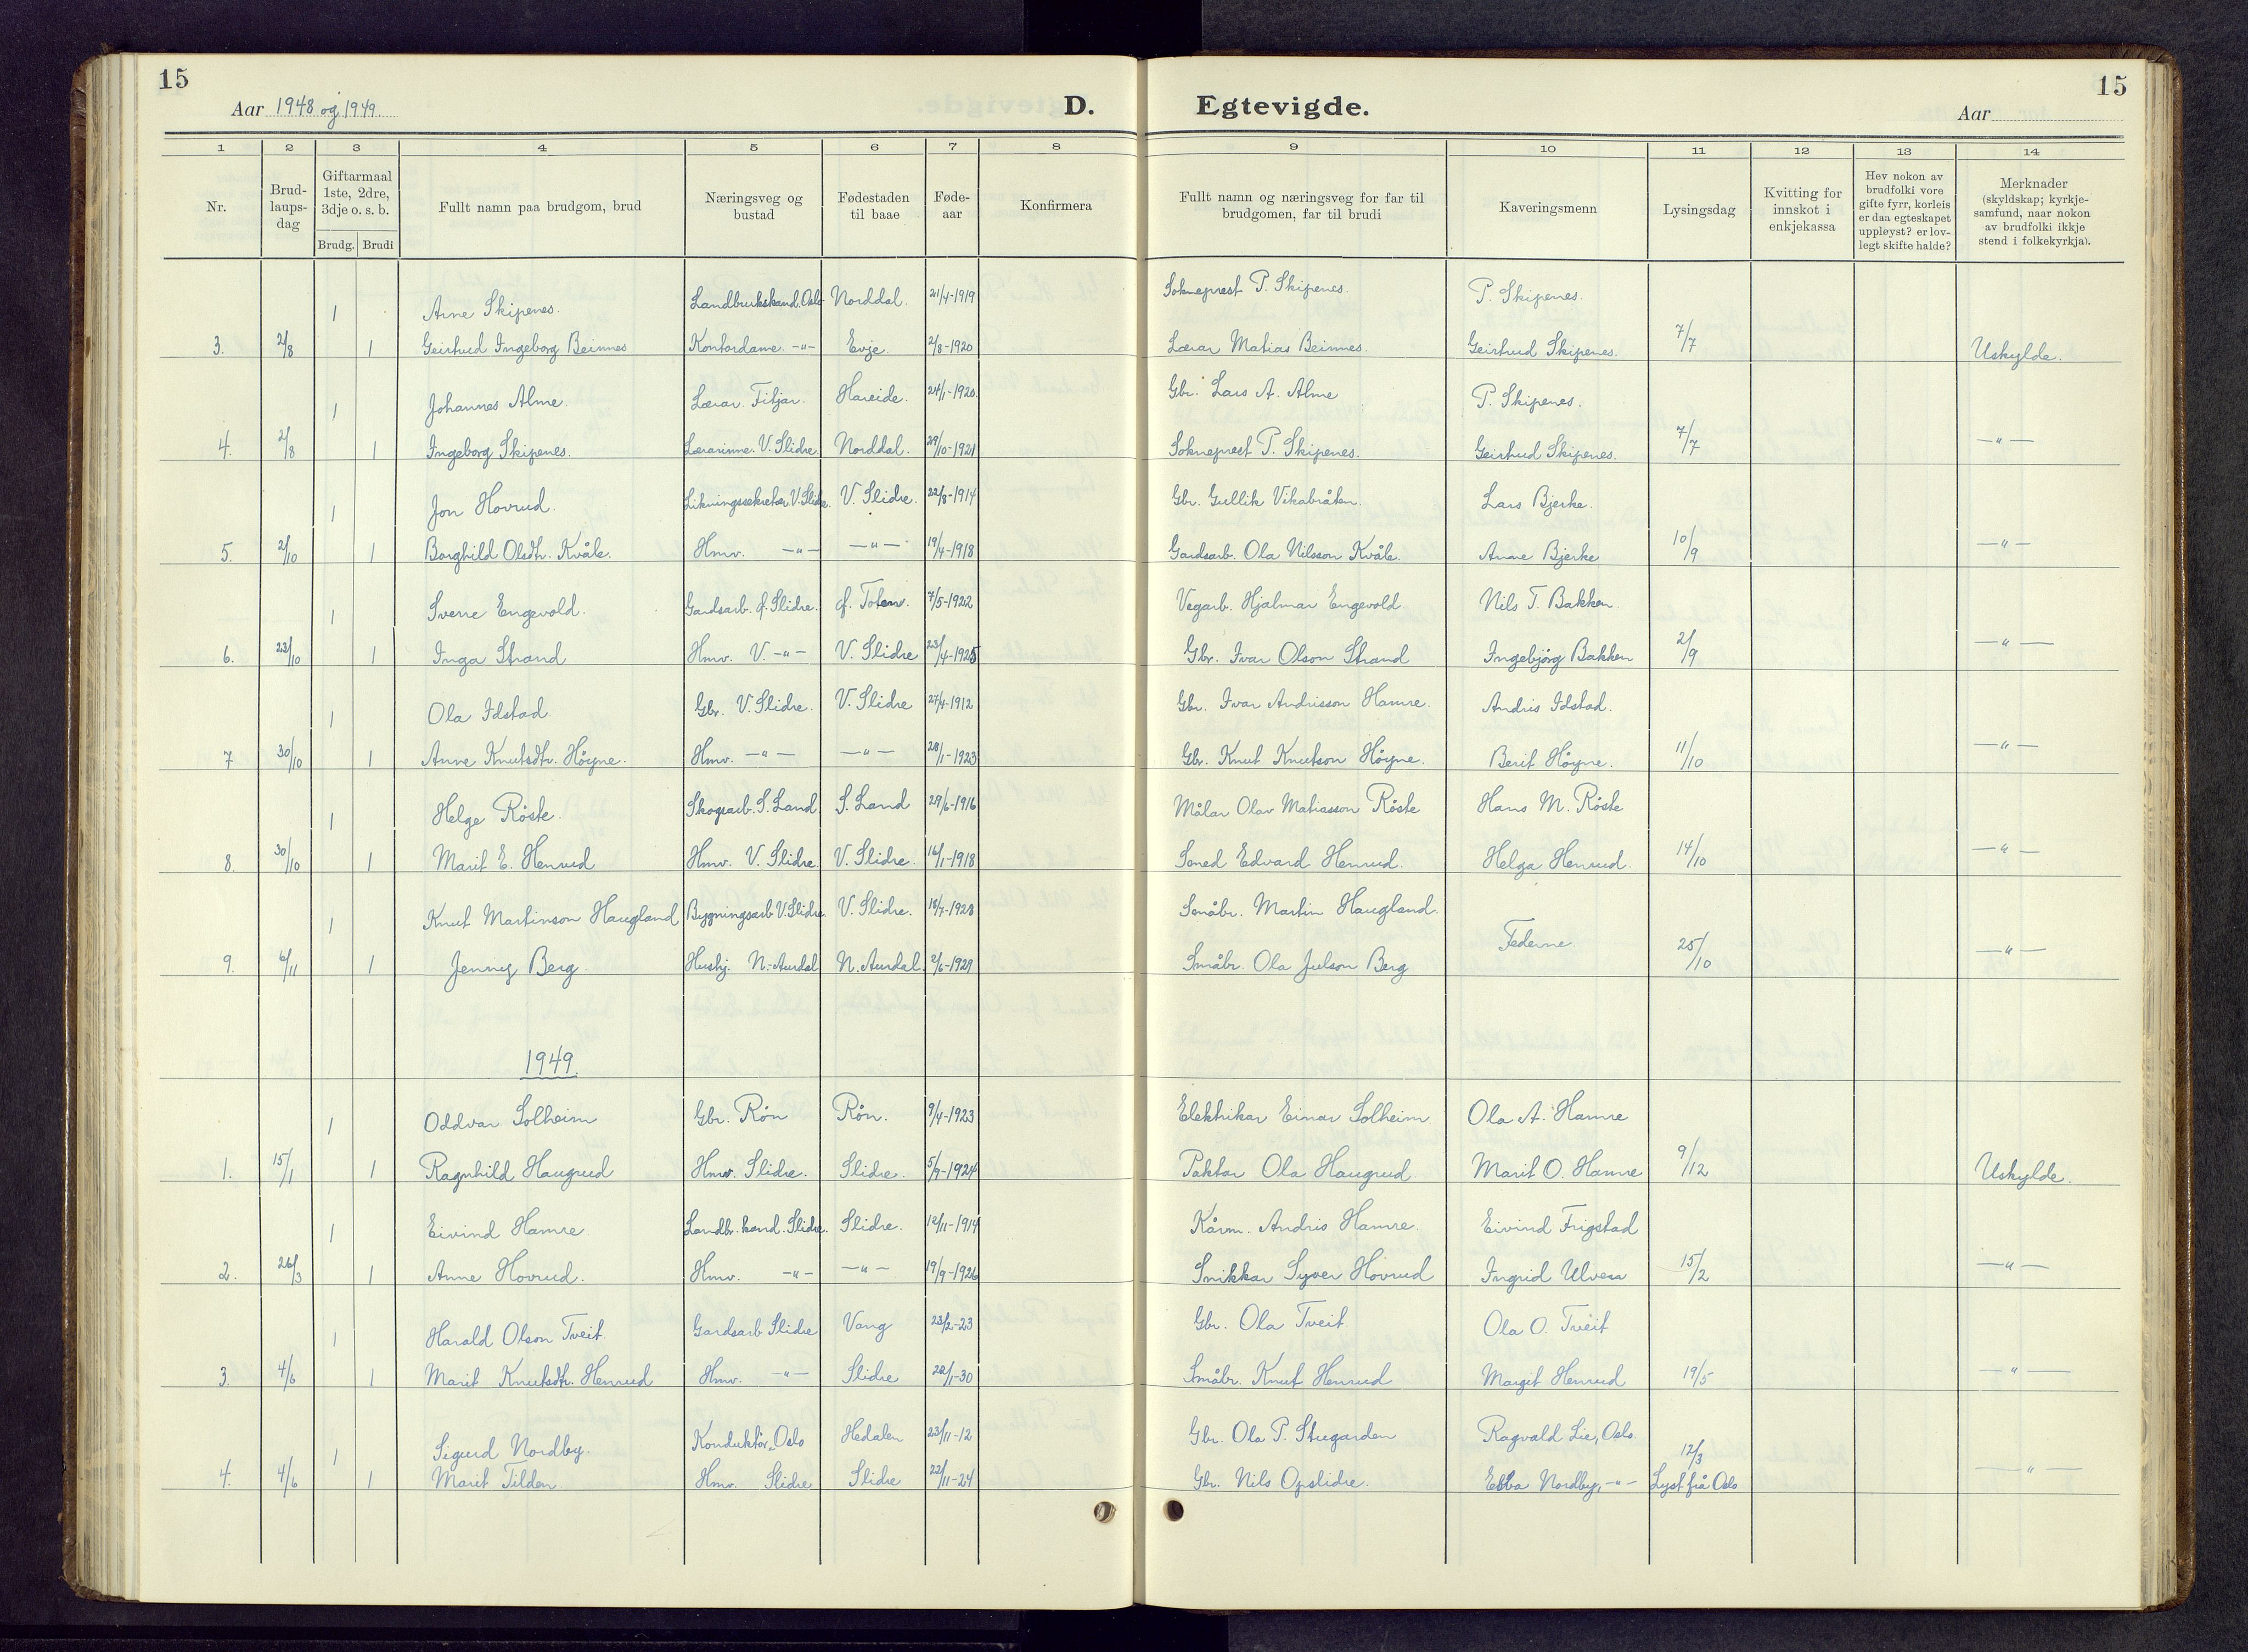 15
Aar 1948 og 1949.
D.
Egtevigde.
Aar
15
1 2 3 4 5 6 7 8 9 10 11 12 13 14
Nr.
Brud-
laups-
dag
Giftarmaal
1ste, 2dre,
3dje o. s. b.
Brudg. Brudi
Fullt namn paa brudgom, brud
Næringsveg og
bustad
Fødestaden
til baae
Føde-
aar
Konfirmera
Fullt namn og næringsveg for far til
brudgomen, far til brudi
Kaveringsmenn
Lysingsdag
Kvitting for
innskot i
enkjekassa
Hev nokon av
brudfolki vore
gifte fyrr, korleis
er daa egteskapet
uppløyst? er lov-
legt skifte halde?
Merknader
(skyldskap; kyrkje-
samfund, naar nokon
av brudfolki ikkje
stend i folkekyrkja).
1 Arne Skipenes. Landbrukskand. Oslo Norddal. 21/4-1919 Sokneprest P. Skipenes. P. Skipenes.
3. 2/8 1 Geirhud Ingeborg Beinnes Kontordame -"- Evje. 2/8-1920 Lærar Matias Beinnes. Geirhud Skipenes. 7/7 Uskylde.
1 Johannes Alme. Lærar. Fitjar. Hareide. 24/1-1920. Gbr. Lars A. Alme P. Skipenes.
4. 2/8 1 Ingeborg Skipenes. Lærarinne. V. Slidre. Norddal. 29/10-1921 Sokneprest P. Skipenes. Geirhud Skipenes. 7/7 -"-
1 Jon Hovrud. Likningssekretær V. Slidre. V. Slidre. 22/8-1914 Gbr. Gullik Vikabråten. Lars Bjerke.
5. 2/10 1 Borghild Olsdtr. Kvåle. Hmv. -"- -"- 19/4-1918 Gardsarb. Ola Nilsson Kvåle. Anne Bjerke 10/9 -"-
1 Sverre Engevold. Gardsarb. Ø. Slidre. Ø. Toten. 7/5-1922 Vegarb. Hjalmar Engevold Nils T. Bakken.
6. 23/10 1 Inga Strand Hmv. V. -"- V. Slidre 23/4-1925 Gbr. Ivar Olson Strand Ingebjörg Bakken 2/9 -"-
1 Ola Idstad Gbr. V. Slidre. V. Slidre 27/4-1912 Gbr. Ivar Andrisson Hamre. Andris Idstad.
7 30/10 1 Anne Knutsdtr. Höyne. Hmv. -"- -"- 28/1-1923 Gbr. Knut Knutson Höyne. Berit Höyne. 11/10 -"-
1 Helge Röste. Skogsarb. S. Land S. Land 29/6-1916 Målar Olav Matiasson Röste Hans M. Röste
8. 30/10 1 Marit E. Henrud Hmv. V. Slidre. V. Slidre. 16/1-1918 Smed Edvard Henrud. Helga Henrud. 14/10 -"-
1 Knut Martinson Haugland Bygningsarb. V. Slidre. V. Slidre. 18/7-1928 Småbr. Martin Haugland.
9. 6/11 1 Jenny Berg Hushj. N.-Aurdal N. Aurdal. 2/6-1929 Småbr. Ola Julson Berg Federne. 25/10 -"-
1949.
1 Oddvar Solheim Gbr. Røn Røn. 9/4-1923 Elektrikar Einar Solheim Ola A. Hamre
1. 15/1 1 Ragnhild Haugrud Hmv. Slidre. Slidre. 5/9-1924 Paktar Ola Haugrud. Marit O. Hamre 9/12 Uskylde.
1 Eivind Hamre Landbr. kand. Slidre. Slidre. 12/11-1914 Kårm. Andris Hamre. Eivind Frigstad
2. 26/3 1 Anne Hovrud. Hmv. -"- -"- 19/9-1926 Snikkar Syver Hovrud Ingrid Ulven 15/2 -"-
1 Harald Olson Tveit. Gardsarb Slidre Vang 23/2-23 Gbr. Ola Tveit. Ola O. Tveit
3. 4/6 1 Marit Knutsdtr. Henrud Hmv. -"- Slidre 22/1-30 Småbr. Knut Henrud Margit Henrud 19/5 -"-
1 Sigurd Nordby. Konduktör, Oslo Hedalen 23/11-12 Gbr. Ola P. Stugarden Ragvald Lie, Oslo. 12/3
4. 4/6 1 Marit Tilden Hmv. Slidre Slidre 22/11-24 Gbr. Nils Opslidre. Ebba Nordby, -"- Lyst frå Oslo -"-